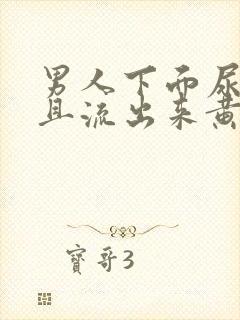 男人下面尿
且流出来黄
寳哥3